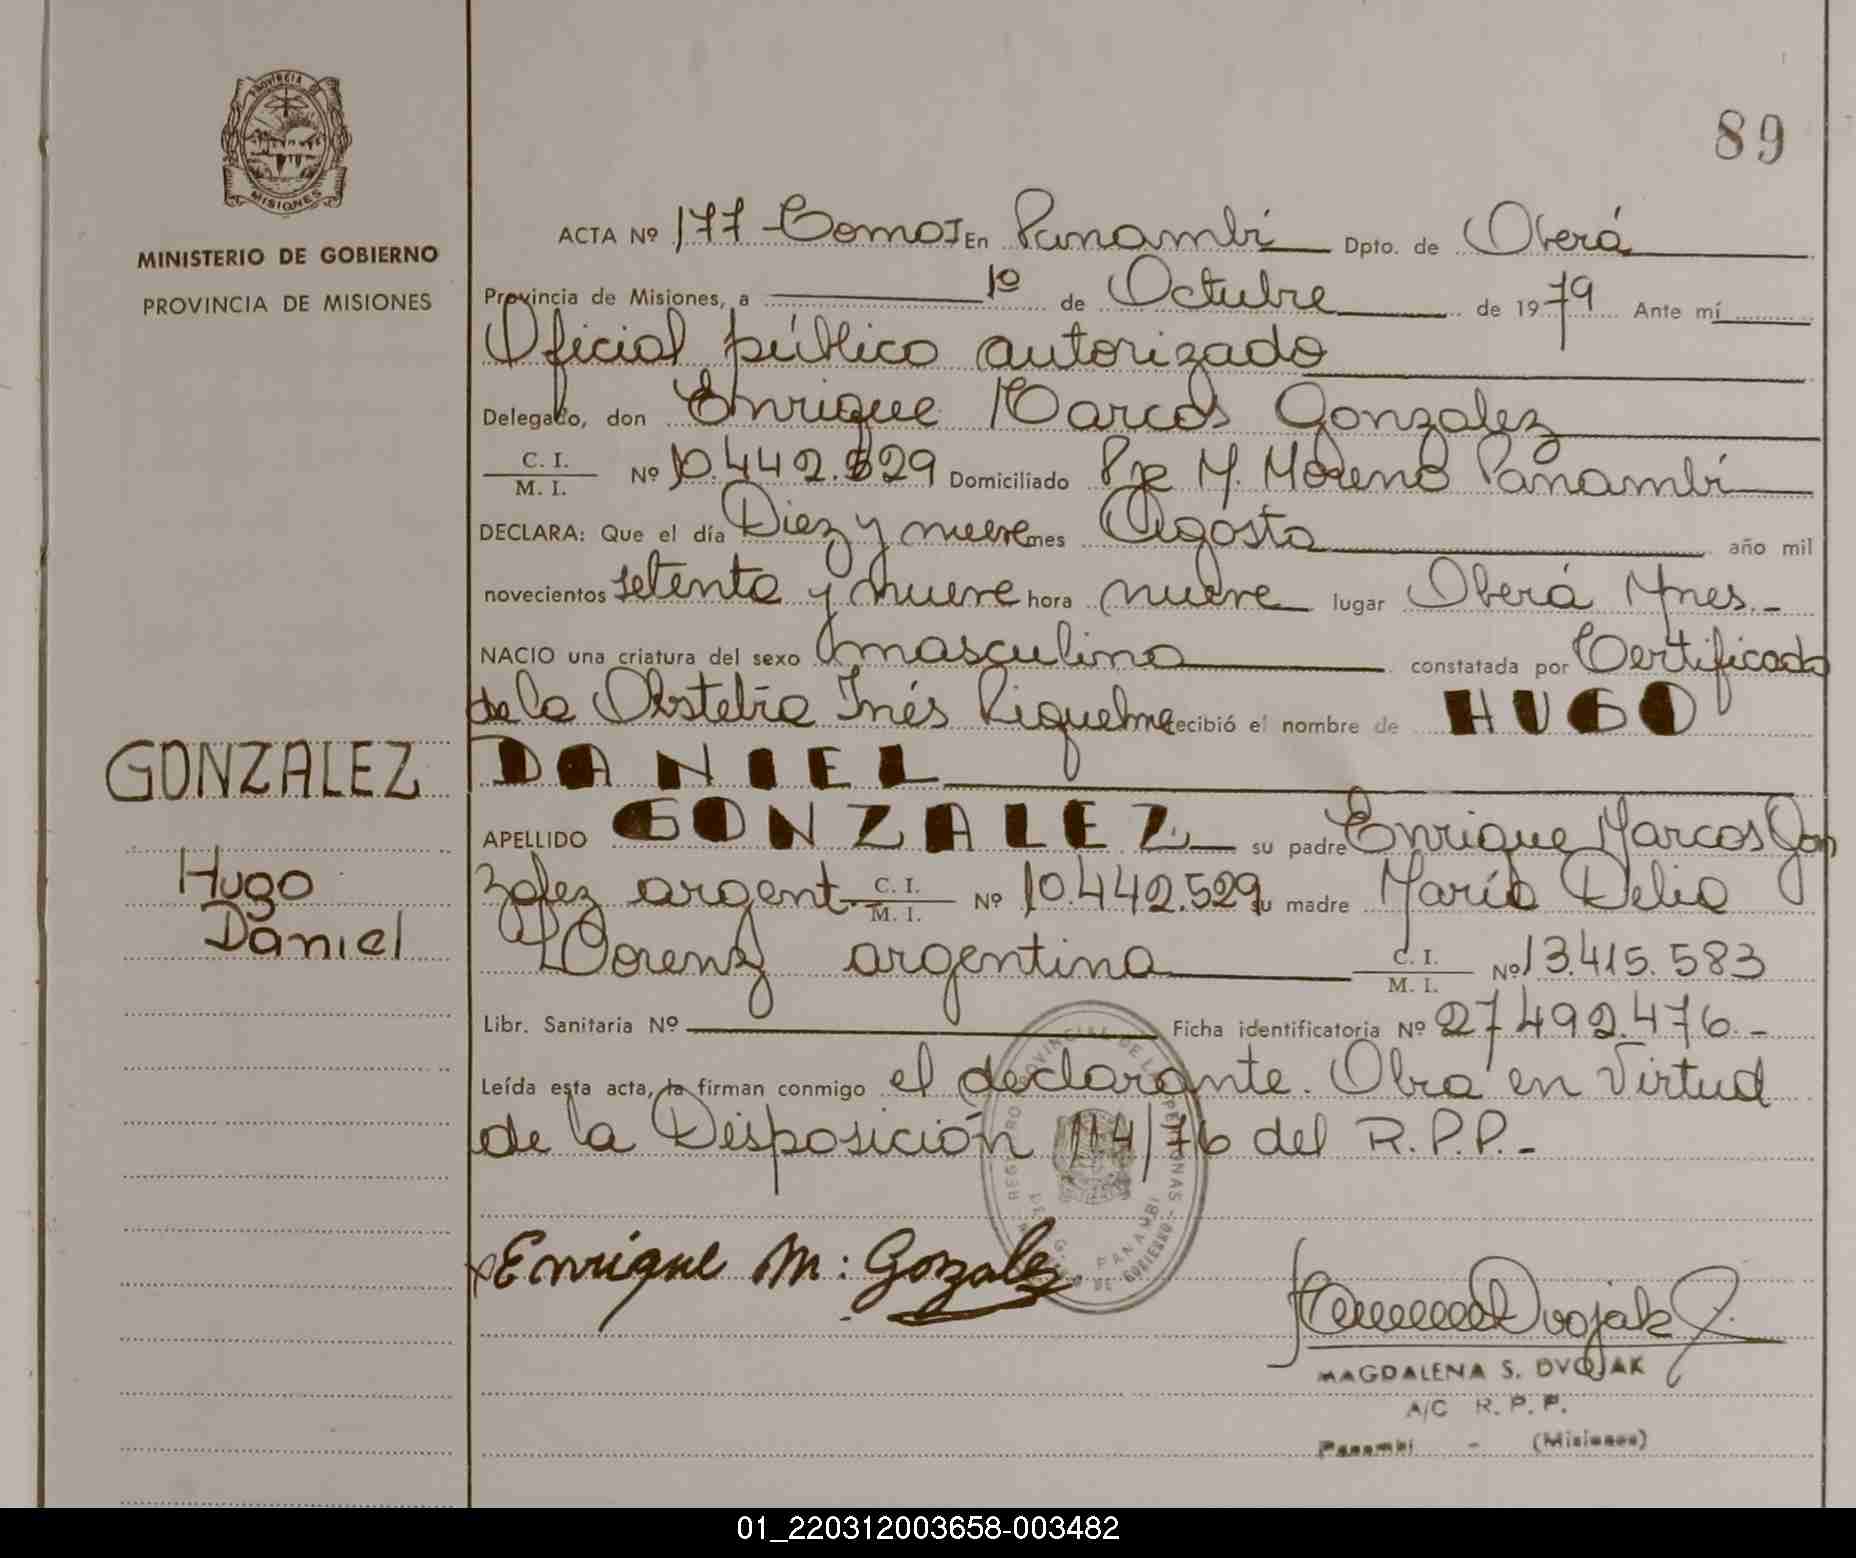 PROVINCIA DE
MISIONES
MINISTERIO DE GOBIERNO
PROVINCIA DE MISIONES
GONZALEZ
Hugo
Daniel
89
ACTA Nº 177 - Tomo I En Panambí Dpto. de Oberá
Provincia de Misiones, a 1º de Octubre de 1979 Ante mí
Oficial público autorizado
Delegado, don Enrique Marcos Gonzalez
C. I. / M. I. Nº 10.442.529 Domiciliado Pje M. Moreno Panambí
DECLARA: Que el día Diez y nueve mes Agosto año mil
novecientos setenta y nueve hora nueve lugar Oberá Mnes.-
NACIO una criatura del sexo masculino constatada por Certificado
de la Obstetra Inés Riquelme recibió el nombre de HUGO
DANIEL
APELLIDO GONZALEZ su padre Enrique Marcos Gon
zalez argent. C. I. / M. I. Nº 10.442.529 su madre María Delia
Lorenz argentina C. I. / M. I. Nº 13.415.583
Libr. Sanitaria Nº Ficha identificatoria Nº 27.492.476.-
Leída esta acta, la firman conmigo el declarante. Obra en Virtud
de la Disposición 114/76 del R.P.P.-
Enrique M. Gonzalez
REGISTRO PROVINCIAL DE LAS PERSONAS
PANAMBI
DE GOBIERNO
Dvojak
MAGDALENA S. DVOJAK
A/C R. P. P.
Panambí - (Misiones)
01_220312003658-003482